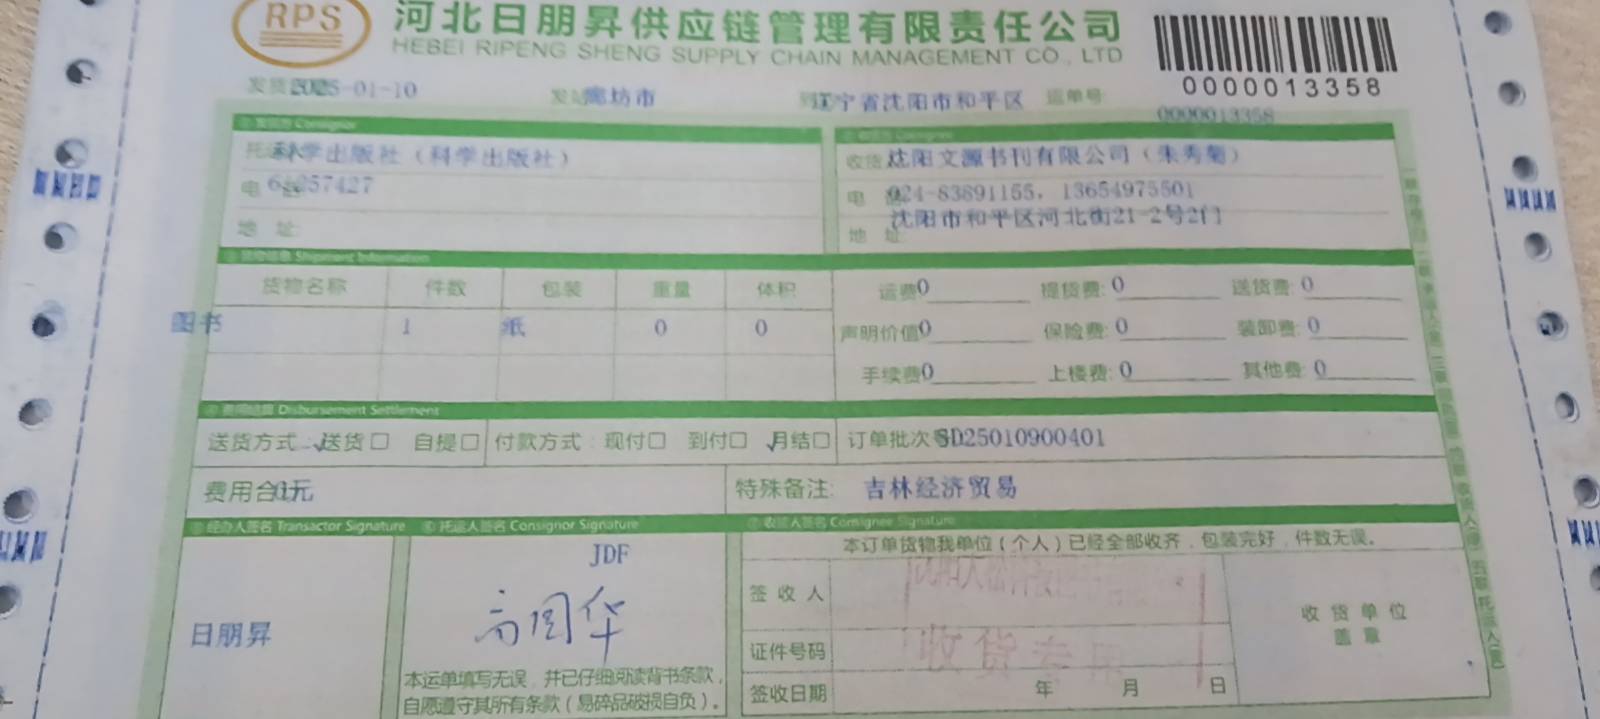 RPS
河北日朋昇供应链管理有限责任公司
HEBEI RIPENG SHENG SUPPLY CHAIN MANAGEMENT CO., LTD
0000013358
发货 2025-01-10 发站 廊坊市 辽宁省沈阳市和平区 运单号
0000013358
Consignor
托运 科学出版社（科学出版社）
电
地 址:
Consignee
收货 沈阳文源书刊有限公司（朱秀菊）
电 024-83891155, 13654975501
地 址: 沈阳市和平区河北街21-2号2门
货物信息 Shipment Information
货物名称 件数 包装 重量 体积
图书 1 纸 0 0
运费 0 提货费: 0 送货费: 0
声明价值 0 保险费: 0 装卸费: 0
手续费 0 上楼费: 0 其他费: 0
费用结算 Disbursement Settlement
送货方式: ✓送货□ 自提□ 付款方式: 现付□ 到付□ ✓月结□ 订单批次 SD25010900401
费用合 0元 特殊备注: 吉林经济贸易
⑤经办人签名 Transactor Signature ⑥托运人签名 Consignor Signature ⑦收货人签名 Consignee Signature
日朋昇
JDF
高国华
本运单填写无误，并已仔细阅读背书条款，
自愿遵守其所有条款（易碎品破损自负）。
本订单货物我单位（个人）已经全部收齐，包装完好，件数无误。
签 收 人
证件号码
签收日期 年 月 日
收货专用
收 货 单 位
盖 章